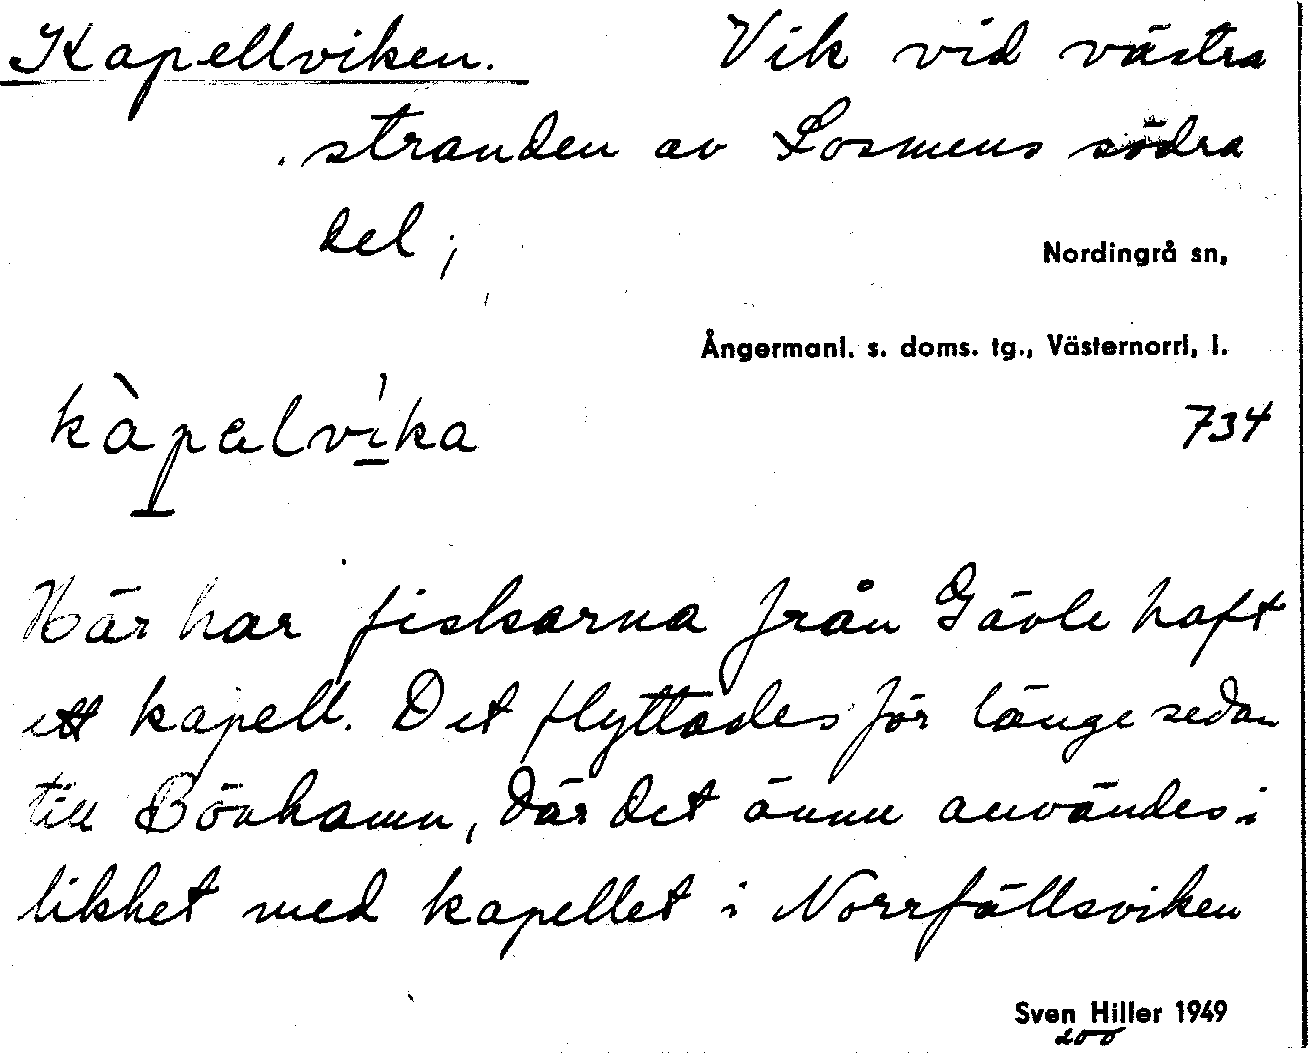 Kapellviken. Vik vid västra
stranden av Losmens södra
del;
Nordingrå sn,
Ångermanl. s. doms. tg., Västernorrl, l.
kàpalvíka
734
Här har fiskarna från Gävle haft
ett kapell. Det flyttades för länge sedan
till Bönhamn, där det ännu användes i
likhet med kapellet i Norrfällsviken
Sven Hiller 1949
200